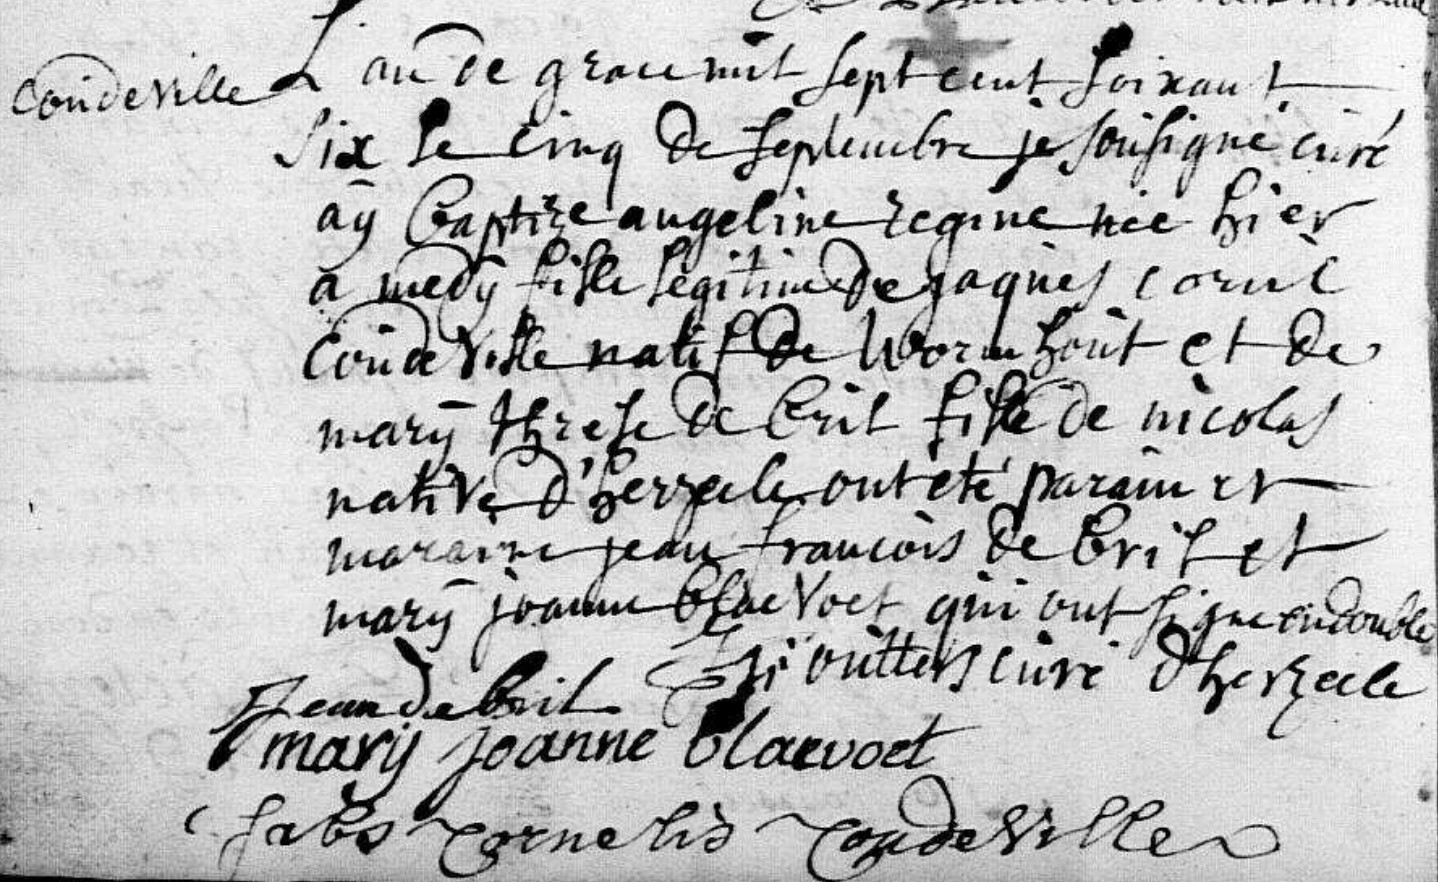 Condeville
L'an de grace mil sept cent soixant
six le cinq de septembre je sousigné curé
aÿ baptize angeline regine née hier
a medÿ fille legitime de jaques corneil
Condeville natif de Wormhout et de
marÿ threse de bril fille de nicolas
native d'herzeele ont eté parain et
maraine jean francois de bril et
marÿ joanne blaevoet qui ont signe en double
outters curé d'herzeele
Jean de bril
marÿ joanne blaevoet
Jabs Cornelis CondeVille